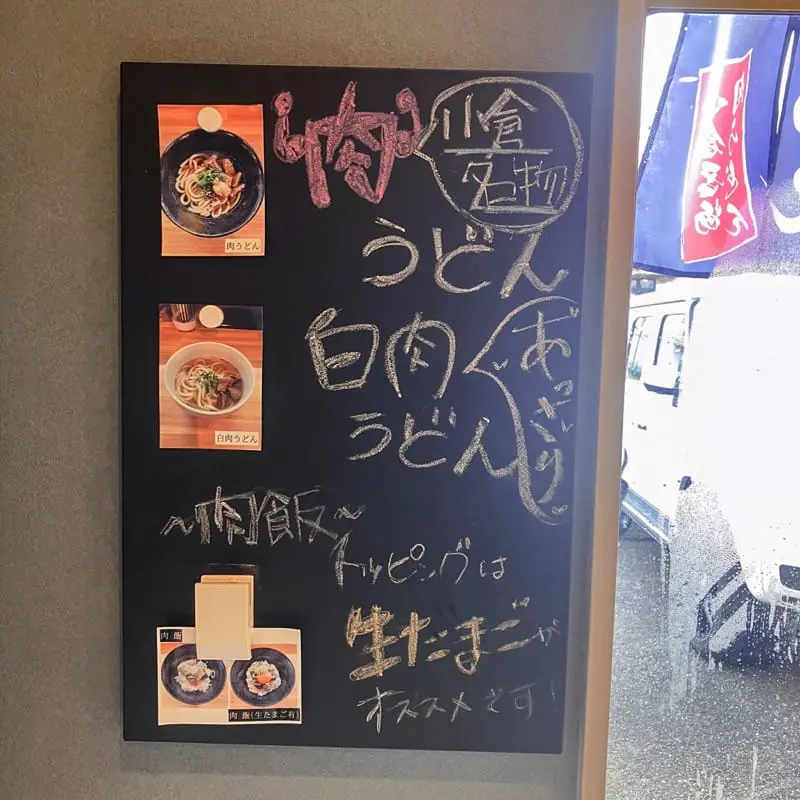 肉
小倉
名物
うどん
肉うどん
白肉
あっさり
うどん
白肉うどん
~肉飯~
トッピングは
生たまごが
オススメです!
肉飯
肉飯(生たまご有)